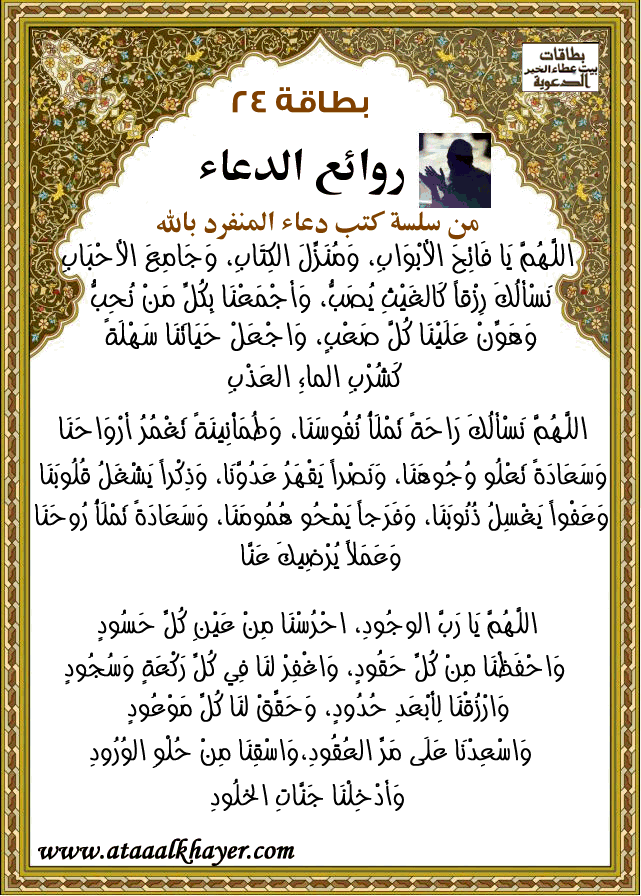 بطاقات
بيت عطاء الخير
الدعوية
بطاقة ٢٤
روائع الدعاء
من سلسة كتب دعاء المنفرد بالله
اللَّهُمَّ يَا فَاتِحَ الأَبْوَابِ، وَمُنَزِّلَ الكِتَابِ، وَجَامِعَ الأَحْبَابِ
نَسْأَلُكَ رِزْقاً كَالغَيْثِ يُصَبُّ، وَأَجْمَعْنَا بِكُلِّ مَنْ نُحِبُّ
وَهَوِّنْ عَلَيْنَا كُلَّ صَعْبٍ، وَاجْعَلْ حَيَاتَنَا سَهْلَةً
كَشُرْبِ الماءِ العَذْبِ
اللَّهُمَّ نَسْأَلُكَ رَاحَةً تَمْلَأُ نُفُوسَنَا، وَطُمَأْنِينَةً تَغْمُرُ أَرْوَاحَنَا
وَسَعَادَةً تَعْلُو وُجُوهَنَا، وَنَصْراً يَقْهَرُ عَدُوَّنَا، وَذِكْراً يَشْغَلُ قُلُوبَنَا
وَعَفْواً يَغْسِلُ ذُنُوبَنَا، وَفَرَجاً يَمْحُو هُمُومَنَا، وَسَعَادَةً تَمْلَأُ رُوحَنَا
وَعَمَلاً يُرْضِيكَ عَنَّا
اللَّهُمَّ يَا رَبَّ الوجُودِ، احْرُسْنَا مِنْ عَيْنِ كُلِّ حَسُودٍ
وَاحْفَظْنَا مِنْ كُلِّ حَقُودٍ، وَاغْفِرْ لنَا فِي كُلِّ رَكْعَةٍ وَسُجُودٍ
وَارْزُقْنَا لِأَبْعَدِ حُدُودٍ، وَحَقِّقْ لنَا كُلَّ مَوْعُودٍ
وَاسْعِدْنَا عَلَى مَرِّ العُقُودِ،وَاسْقِنَا مِنْ حُلْوِ الوُرُودِ
وَأَدْخِلْنَا جَنَّاتِ الخلُودِ
www.ataaalkhayer.com